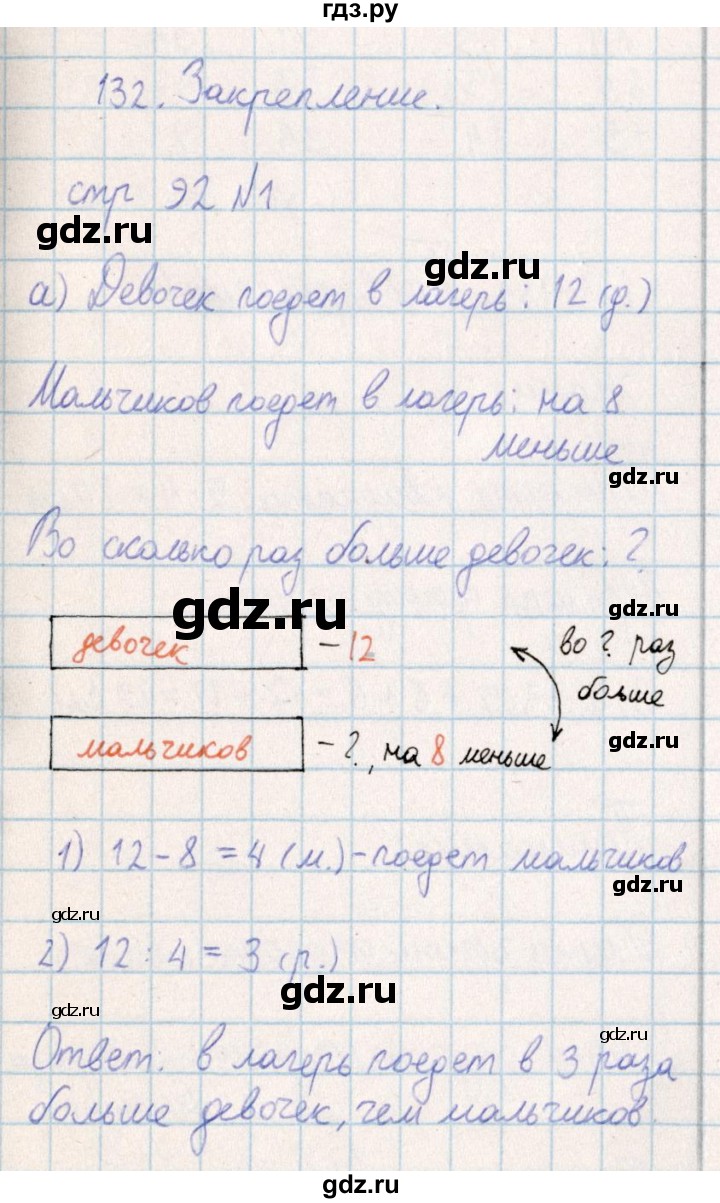 гдз.ру
132. Закрепление.
стр 92 №1
gdz.ru
gdz.ru
а) Девочек поедет в лагерь: 12 (д.)
Мальчиков поедет в лагерь: на 8
меньше
gdz.ru
Во сколько раз больше девочек: ?
gdz.ru
gdz.ru
девочек - 12
во ? раз
больше
gdz.ru
мальчиков - ?, на 8 меньше
1) 12 - 8 = 4 (м.) - поедет мальчиков
gdz.ru
gdz.ru
2) 12 : 4 = 3 (р.)
gdz.ru
gdz.ru
gdz.ru
Ответ: в лагерь поедет в 3 раза
больше девочек, чем мальчиков.
gdz.ru
gdz.ru